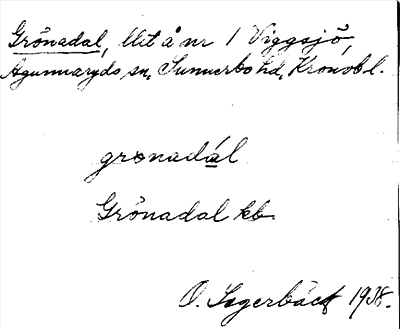 Grönadal, llit å nr 1 Viggsjö,
Agunnaryds sn, Sunnerbo hd, Kronob l.
gronadál
Grönadal kb
O. Lagerbäck 1938.